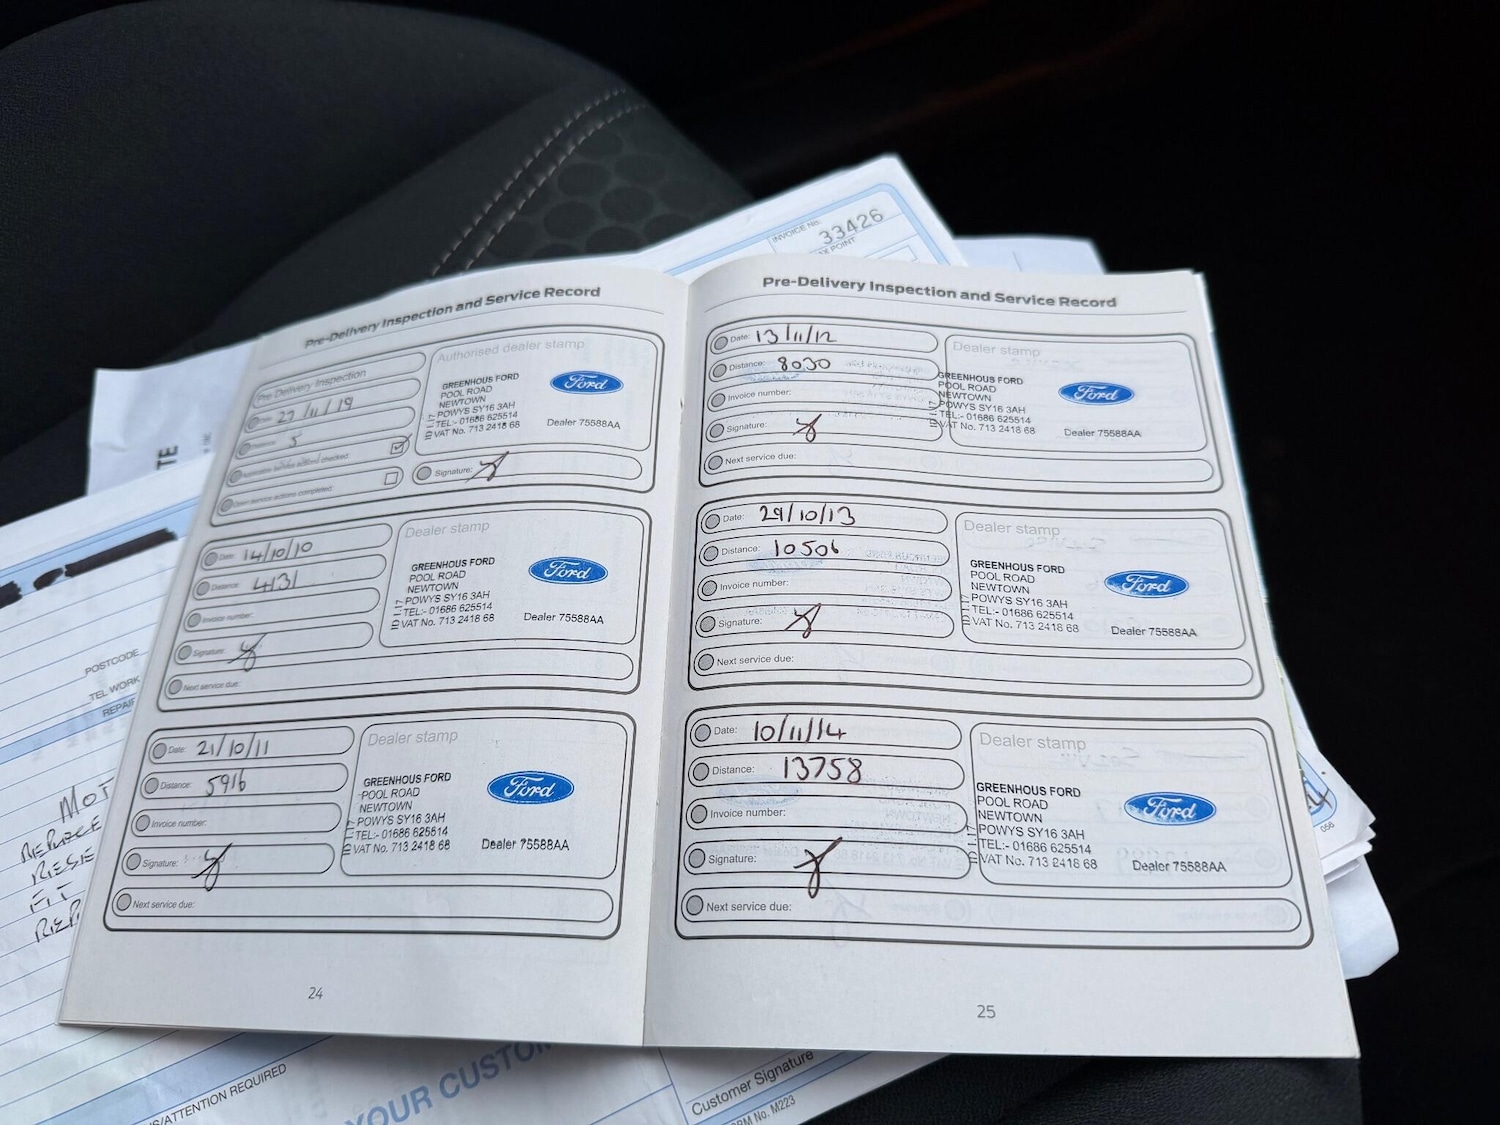 INVOICE No.
33426
Pre-Delivery Inspection and Service Record
Pre-Delivery Inspection
Date: 22/11/19
Distance: 5
Authorised dealer stamp
GREENHOUS FORD
POOL ROAD
NEWTOWN
POWYS SY16 3AH
TEL:- 01686 625514
VAT No. 713 2418 68
ID 1.17
Ford
Dealer 75588AA
Signature:
Date: 14/10/10
Distance: 4131
Invoice number:
Signature:
Next service due:
Dealer stamp
GREENHOUS FORD
POOL ROAD
NEWTOWN
POWYS SY16 3AH
TEL:- 01686 625514
VAT No. 713 2418 68
ID 1.17
Ford
Dealer 75588AA
Date: 21/10/11
Distance: 5916
Invoice number:
Signature:
Next service due:
Dealer stamp
GREENHOUS FORD
POOL ROAD
NEWTOWN
POWYS SY16 3AH
TEL:- 01686 625514
VAT No. 713 2418 68
ID 1.17
Ford
Dealer 75588AA
24
Pre-Delivery Inspection and Service Record
Date: 13/11/12
Distance: 8030
Invoice number:
Signature:
Next service due:
Dealer stamp
GREENHOUS FORD
POOL ROAD
NEWTOWN
POWYS SY16 3AH
TEL:- 01686 625514
VAT No. 713 2418 68
ID 1.17
Ford
Dealer 75588AA
Date: 29/10/13
Distance: 10506
Invoice number:
Signature:
Next service due:
Dealer stamp
GREENHOUS FORD
POOL ROAD
NEWTOWN
POWYS SY16 3AH
TEL:- 01686 625514
VAT No. 713 2418 68
ID 1.17
Ford
Dealer 75588AA
Date: 10/11/14
Distance: 13758
Invoice number:
Signature:
Next service due:
Dealer stamp
GREENHOUS FORD
POOL ROAD
NEWTOWN
POWYS SY16 3AH
TEL:- 01686 625514
VAT No. 713 2418 68
ID 1.17
Ford
Dealer 75588AA
25
POSTCODE
TEL WORK
REPAIR
MOT
ATTENTION REQUIRED
YOUR CUSTOM
Customer Signature
FORM No. M223
056